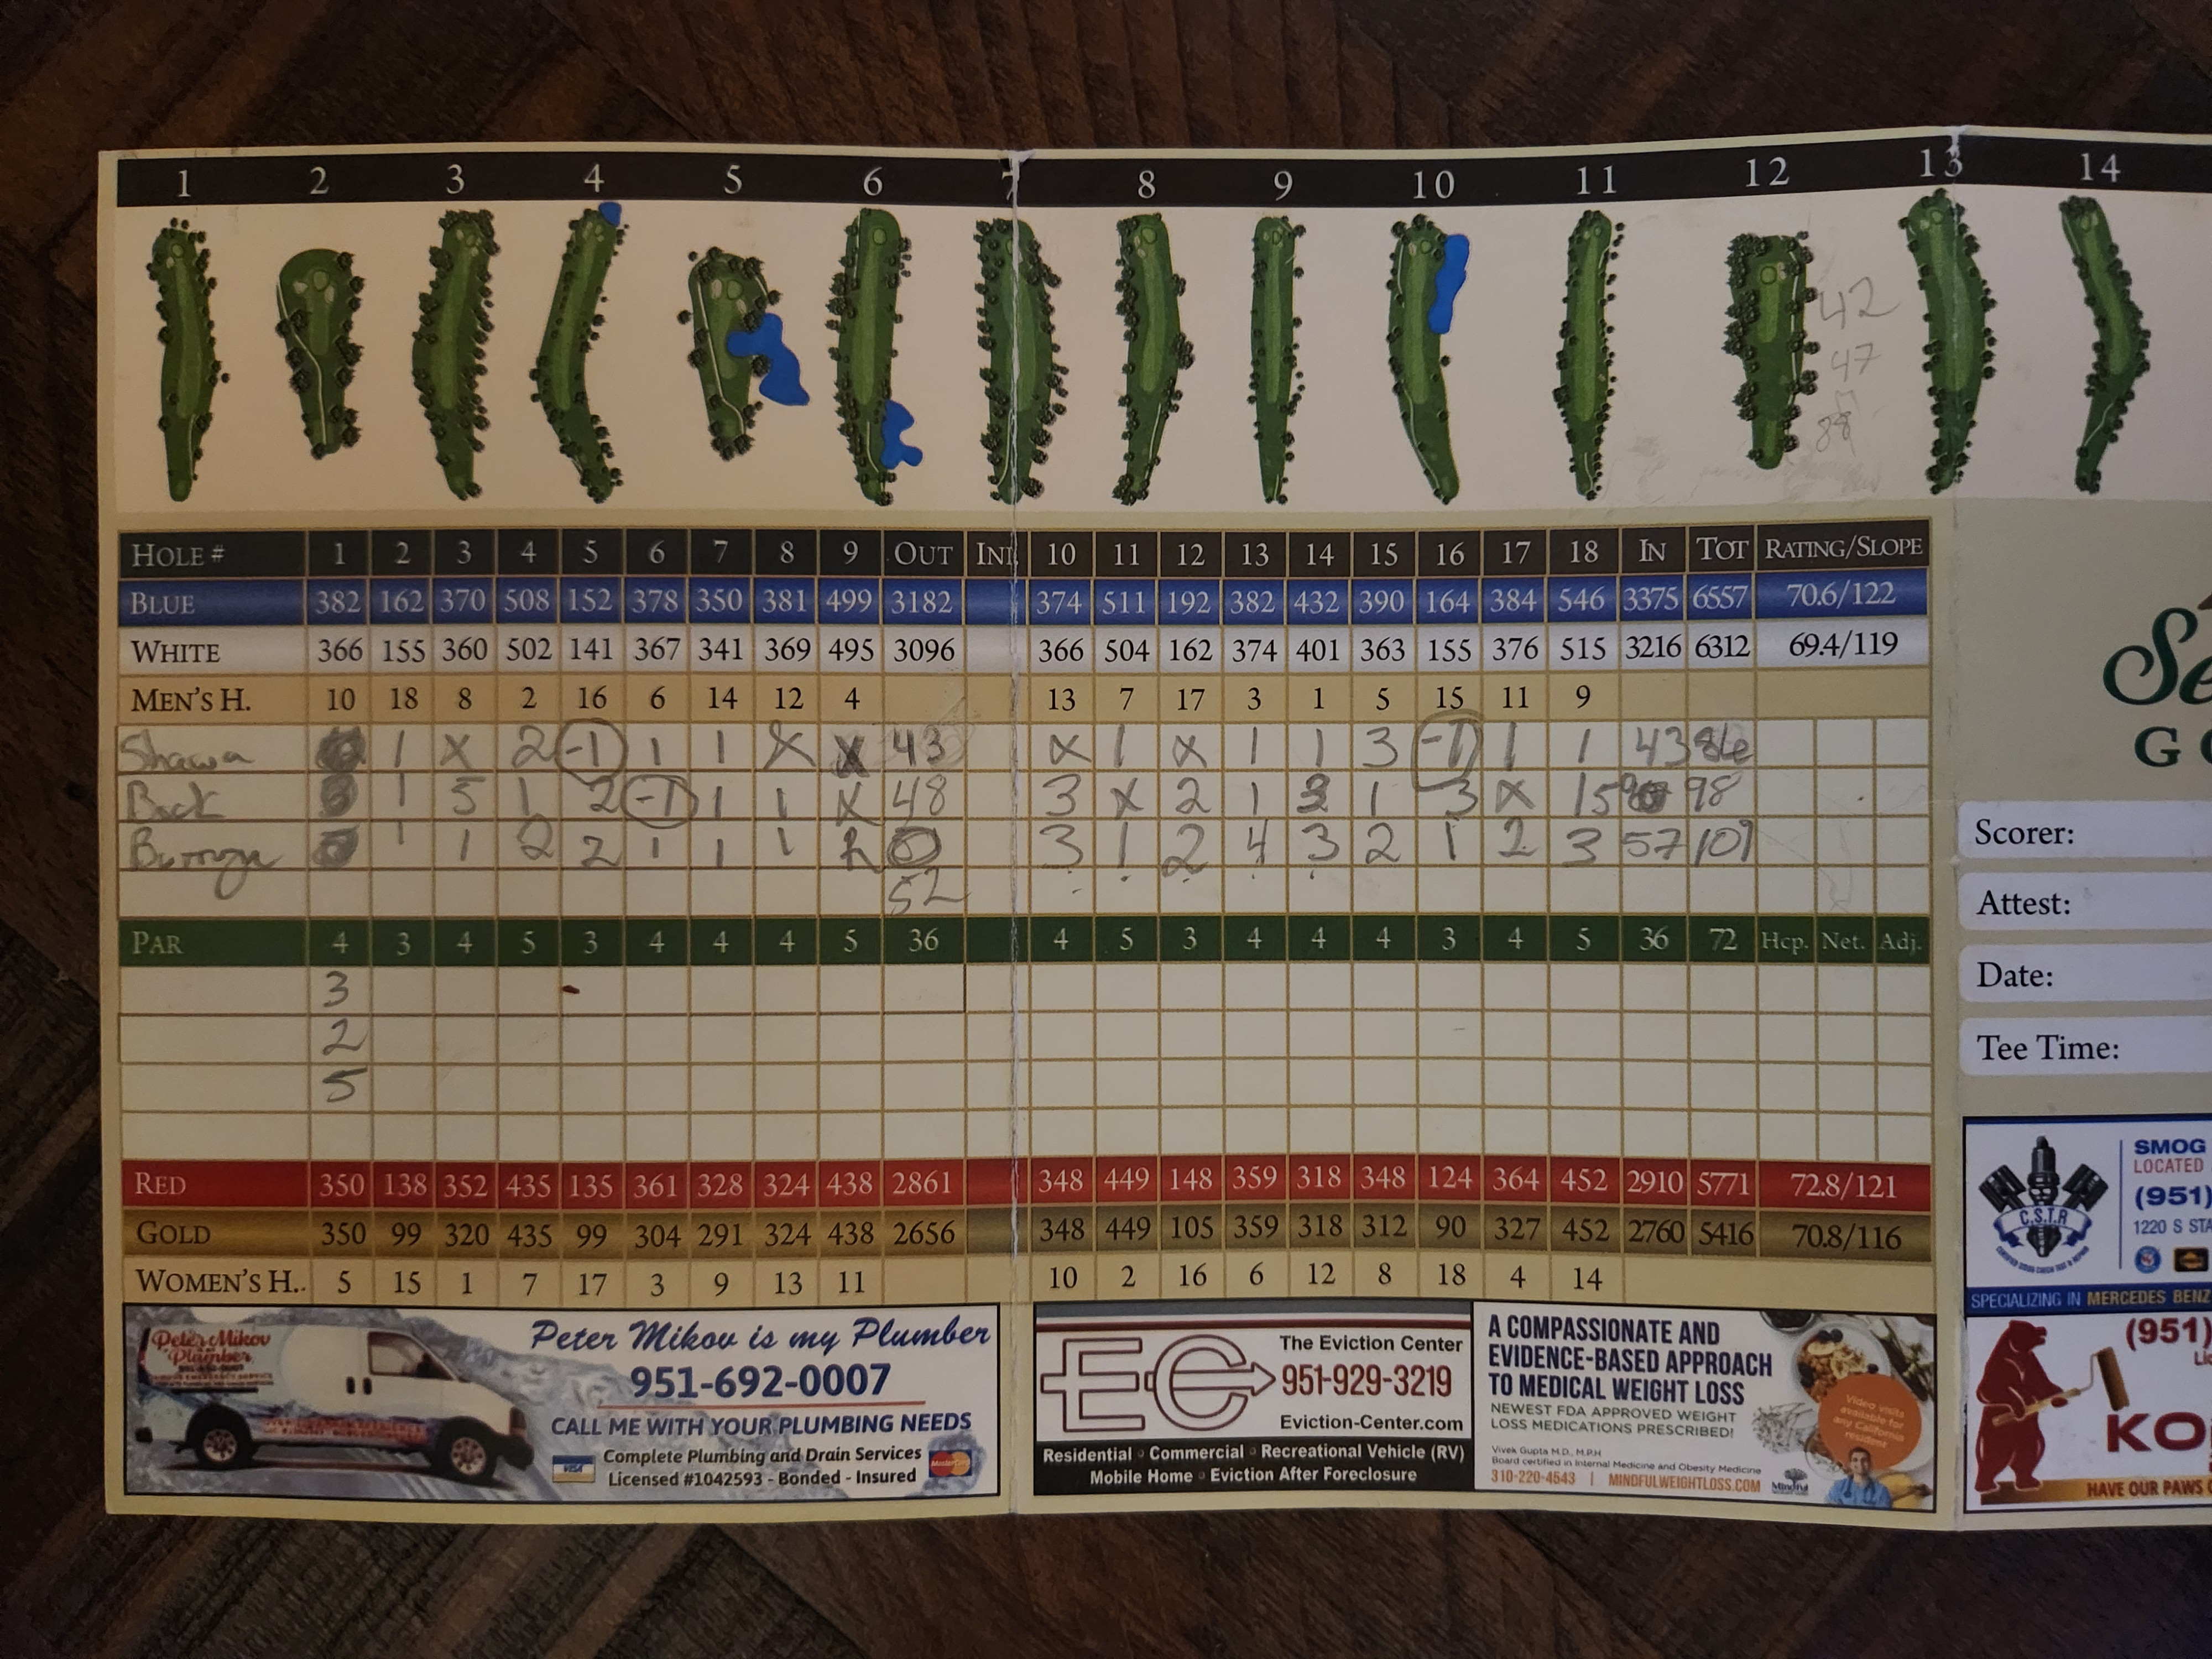 1 2 3 4 5 6 7 8 9 10 11 12 13 14
42
47
88
HOLE # 1 2 3 4 5 6 7 8 9 OUT INI. 10 11 12 13 14 15 16 17 18 IN TOT RATING/SLOPE
BLUE 382 162 370 508 152 378 350 381 499 3182 374 511 192 382 432 390 164 384 546 3375 6557 70.6/122
WHITE 366 155 360 502 141 367 341 369 495 3096 366 504 162 374 401 363 155 376 515 3216 6312 69.4/119
MEN'S H. 10 18 8 2 16 6 14 12 4 13 7 17 3 1 5 15 11 9
Shawn 1 X 2 -1 1 1 X X 43 X 1 X 1 1 3 -1 1 1 43 86
1 5 1 2 -1 1 1 X 48 3 X 2 1 3 1 3 X 1 50 98
1 1 2 2 1 1 1 2 3 1 2 4 3 2 1 2 3 57 109
52
PAR 4 3 4 5 3 4 4 4 5 36 4 5 3 4 4 4 3 4 5 36 72 Hcp. Net. Adj.
3
2
5
RED 350 138 352 435 135 361 328 324 438 2861 348 449 148 359 318 348 124 364 452 2910 5771 72.8/121
GOLD 350 99 320 435 99 304 291 324 438 2656 348 449 105 359 318 312 90 327 452 2760 5416 70.8/116
WOMEN'S H. 5 15 1 7 17 3 9 13 11 10 2 16 6 12 8 18 4 14
Se
G
Scorer:
Attest:
Date:
Tee Time:
Peter Mikov
is my
Plumber
Peter Mikov is my Plumber
951-692-0007
CALL ME WITH YOUR PLUMBING NEEDS
Complete Plumbing and Drain Services
Licensed #1042593 - Bonded - Insured
VISA
MasterCard
EC
The Eviction Center
951-929-3219
Eviction-Center.com
Residential ◦ Commercial ◦ Recreational Vehicle (RV)
Mobile Home ◦ Eviction After Foreclosure
A COMPASSIONATE AND
EVIDENCE-BASED APPROACH
TO MEDICAL WEIGHT LOSS
NEWEST FDA APPROVED WEIGHT
LOSS MEDICATIONS PRESCRIBED!
Vivek Gupta M.D., M.P.H
Board certified in Internal Medicine and Obesity Medicine
310-220-4543 | MINDFULWEIGHTLOSS.COM
Mindful
Video visits
available for
any California
resident
SMOG
LOCATED
(951)
1220 S STA
C.S.T.R
SPECIALIZING IN MERCEDES BENZ
(951)
Lic
KO
HAVE OUR PAWS